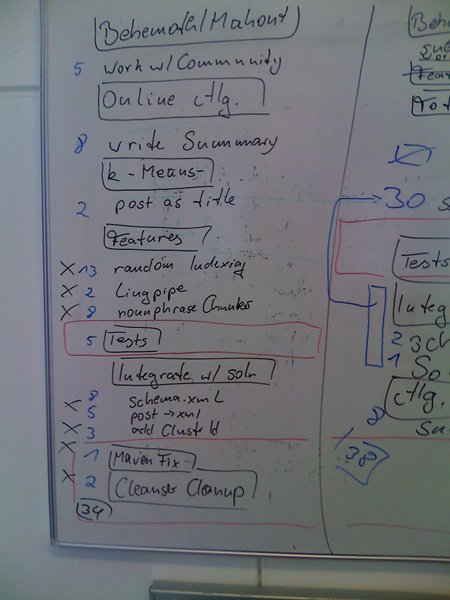 Behemoth/Mahout
5 work w/ Community
Online ctlg.
8 write Summary
k-Means-
2 post as title
Features
x 13 random Indexing
x 2 Lingpipe
x 8 nounphrase Chunker
5 Tests
Integrate w/ Soln
x 8 schema.xml
5 post → xml
x 3 add Clust Id
x 1 Maven Fix-
x 2 Cleanup
34
Beh
30 S
Tests
Integ
2 Sch
1 So
ctlg.
8 Su
38